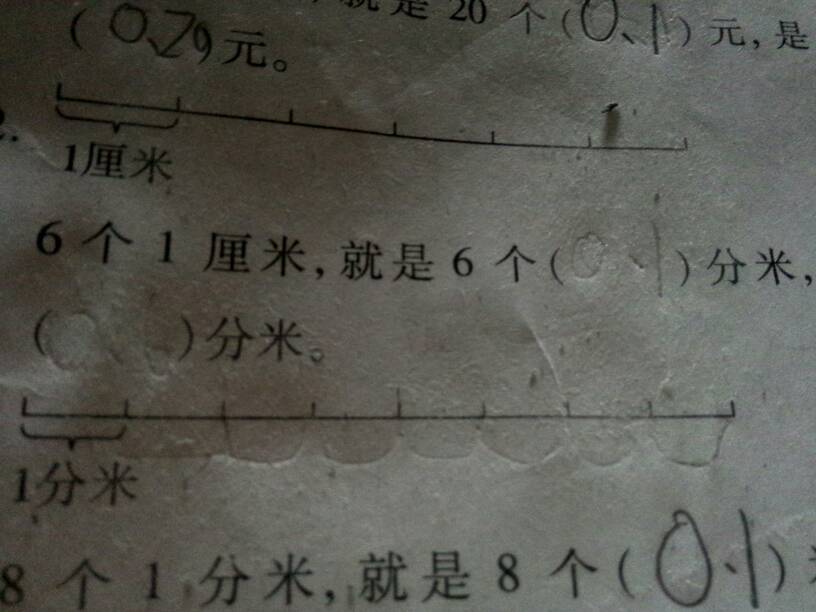 就是20个(0.1)元,是
()元。
2.
1厘米
6个1厘米,就是6个(0.1)分米,
()分米。
1分米
8个1分米,就是8个(0.1)